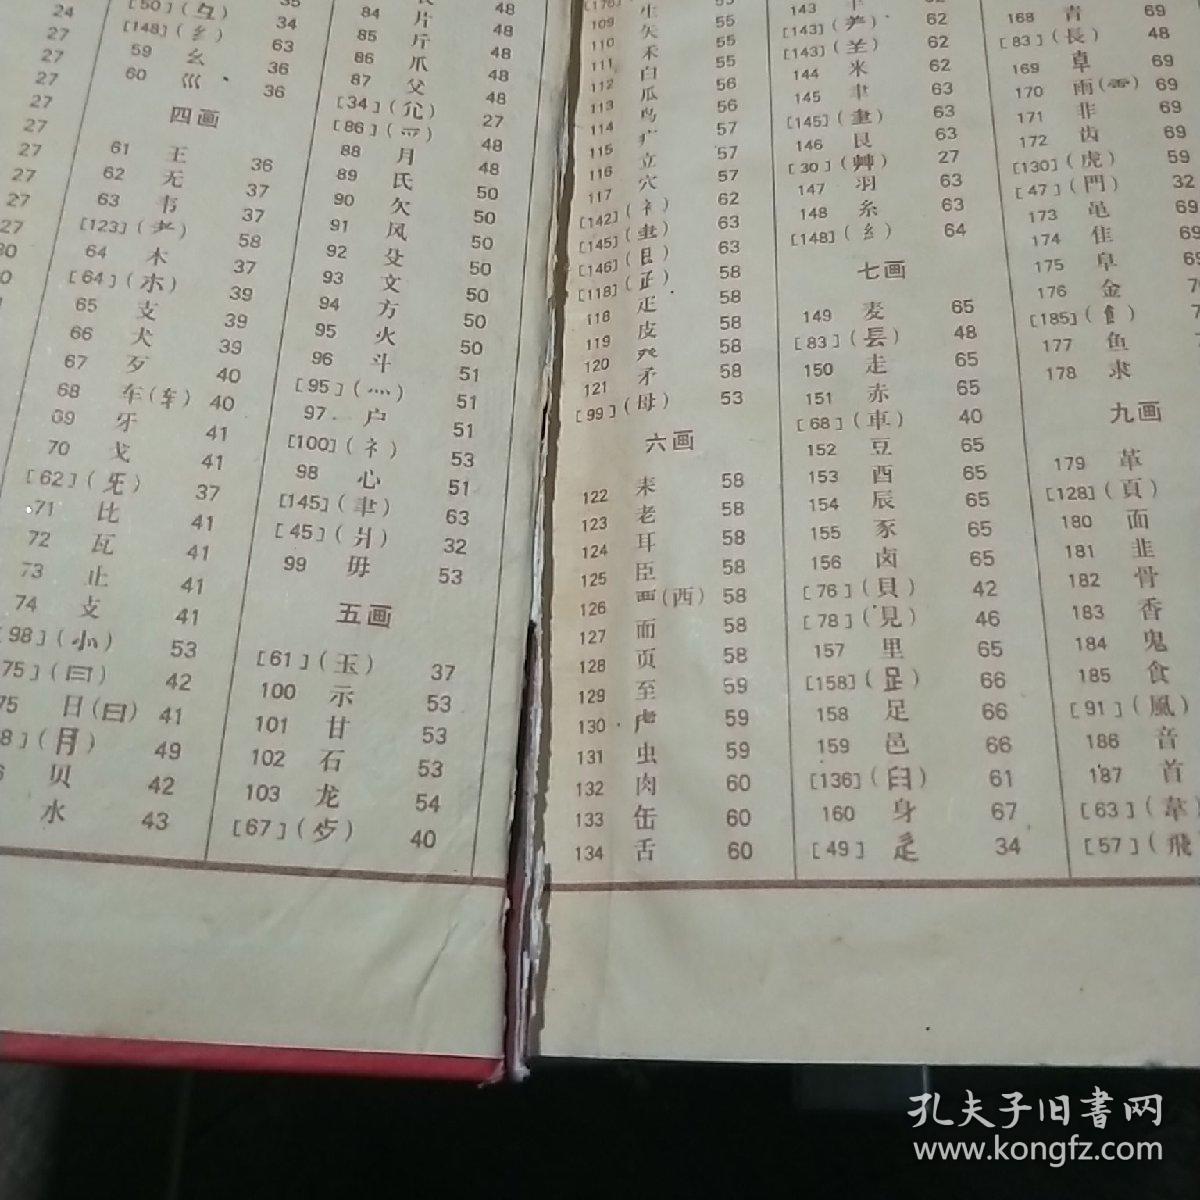 24
27
27
27
27
27
27
27
27
27
[50](彑) 35
[148](纟) 34
59 幺 63
60 巛 36
36
四画
61 王 36
62 无 37
63 韦 37
[123](耂) 58
64 木 37
[64](朩) 39
65 支 39
66 犬 39
67 歹 40
68 车(车) 40
69 牙 41
70 戈 41
[62](旡) 37
71 比 41
72 瓦 41
73 止 41
74 攴 41
[98](⺗) 53
75](曰) 42
75 日(曰) 41
8](⺝) 49
贝 42
水 43
84 片 48
85 斤 48
86 爪 48
87 父 48
[34](允) 27
[86](爫) 48
88 月 48
89 氏 50
90 欠 50
91 风 50
92 殳 50
93 文 50
94 方 50
95 火 50
96 斗 51
[95](灬) 51
97 户 51
[100](礻) 53
98 心 51
[145](肀) 63
[45](爿) 32
99 毋 53
五画
[61](玉) 37
100 示 53
101 甘 53
102 石 53
103 龙 54
[67](歺) 40
生 55
109 矢 55
110 禾 55
111 白 55
112 瓜 56
113 鸟 56
114 疒 57
115 立 57
116 穴 57
117 62
[142](衤) 63
[145](⺻) 63
[146](艮) 58
[118](𤴔) 58
118 疋 58
119 皮 58
120 癶 58
121 矛 58
[99](母) 53
六画
122 耒 58
123 老 58
124 耳 58
125 臣 58
126 覀(西) 58
127 而 58
128 页 58
129 至 59
130 虍 59
131 虫 59
132 肉 60
133 缶 60
134 舌 60
143 羊 62
[143](⺶) 62
[143](⺷) 62
144 米 62
145 聿 63
[145](⺻) 63
146 艮 63
[30](艸) 27
147 羽 63
148 糸 63
[148](糹) 64
七画
149 麦 65
[83](镸) 48
150 走 65
151 赤 65
[68](車) 40
152 豆 65
153 酉 65
154 辰 65
155 豕 65
156 卤 65
[76](貝) 42
[78](見) 46
157 里 65
[158](⻊) 66
158 足 66
159 邑 66
[136](臼) 61
160 身 67
[49] 辵 34
168 青 69
[83](長) 48
169 卓 69
170 雨(⻗) 69
171 非 69
172 齿 69
[130](虎) 59
[47](門) 32
173 黾 69
174 隹 69
175 阜 69
176 金
[185](飠)
177 鱼
178 隶
九画
179 革
[128](頁)
180 面
181 韭
182 骨
183 香
184 鬼
185 食
[91](風)
186 音
187 首
[63](韋)
[57](飛
孔夫子旧书网
www.kongfz.com